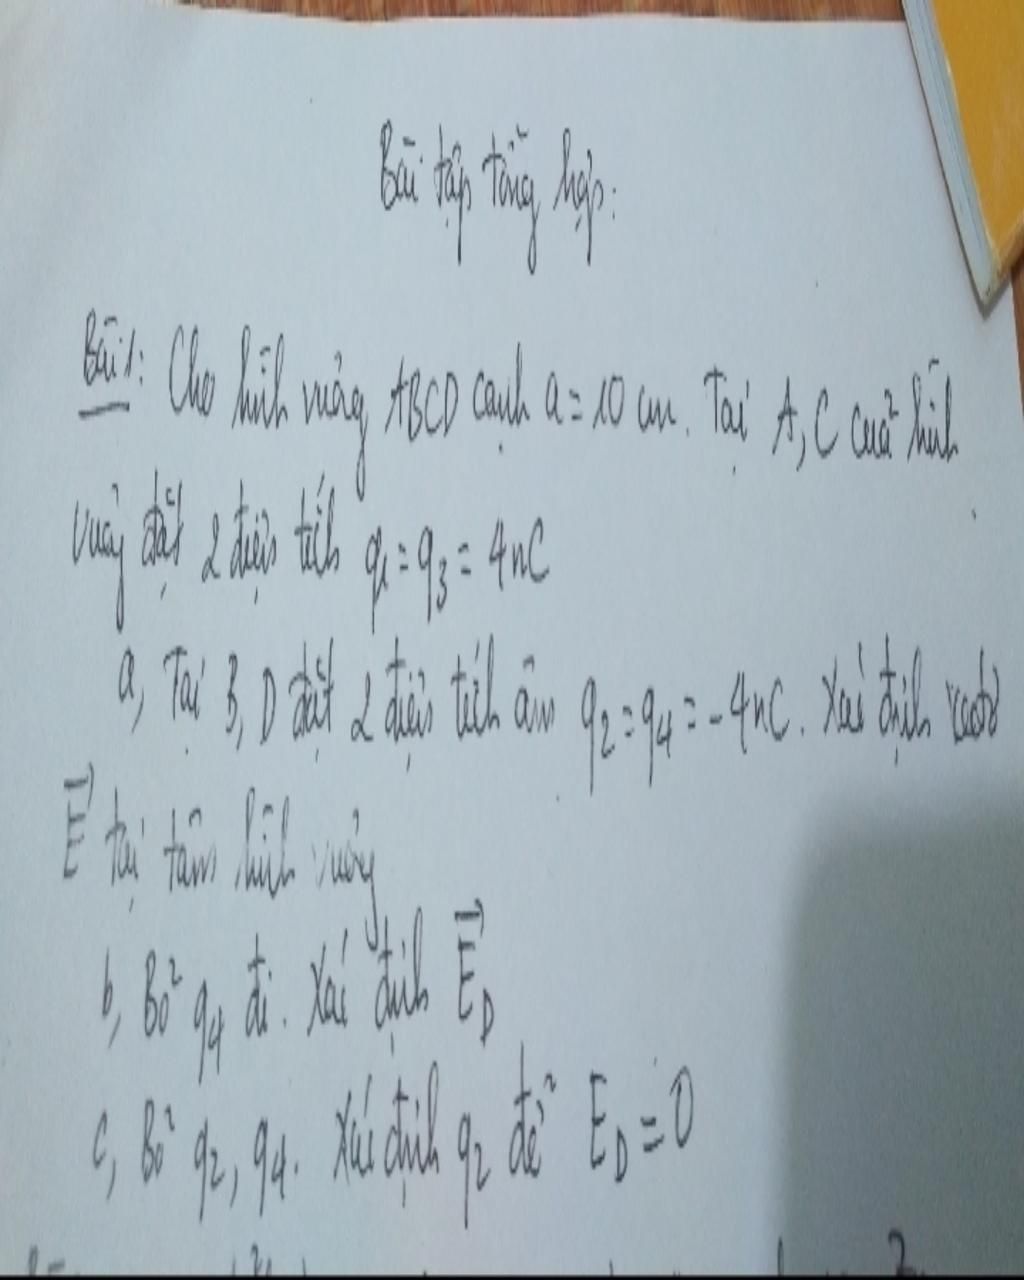 Bài tập tổng hợp:
Bài 1: Cho hình vuông ABCD cạnh a = 10 cm. Tại A, C của hình
vuông đặt 2 điện tích q1 = q3 = 4nC
a, Tại B, D đặt 2 điện tích âm q2 = q4 = -4nC. Xác định vectơ
E⃗ tại tâm hình vuông
b, Bỏ q4 đi. Xác định E⃗D
c, Bỏ q2, q4. Xác định q2 để ED = 0